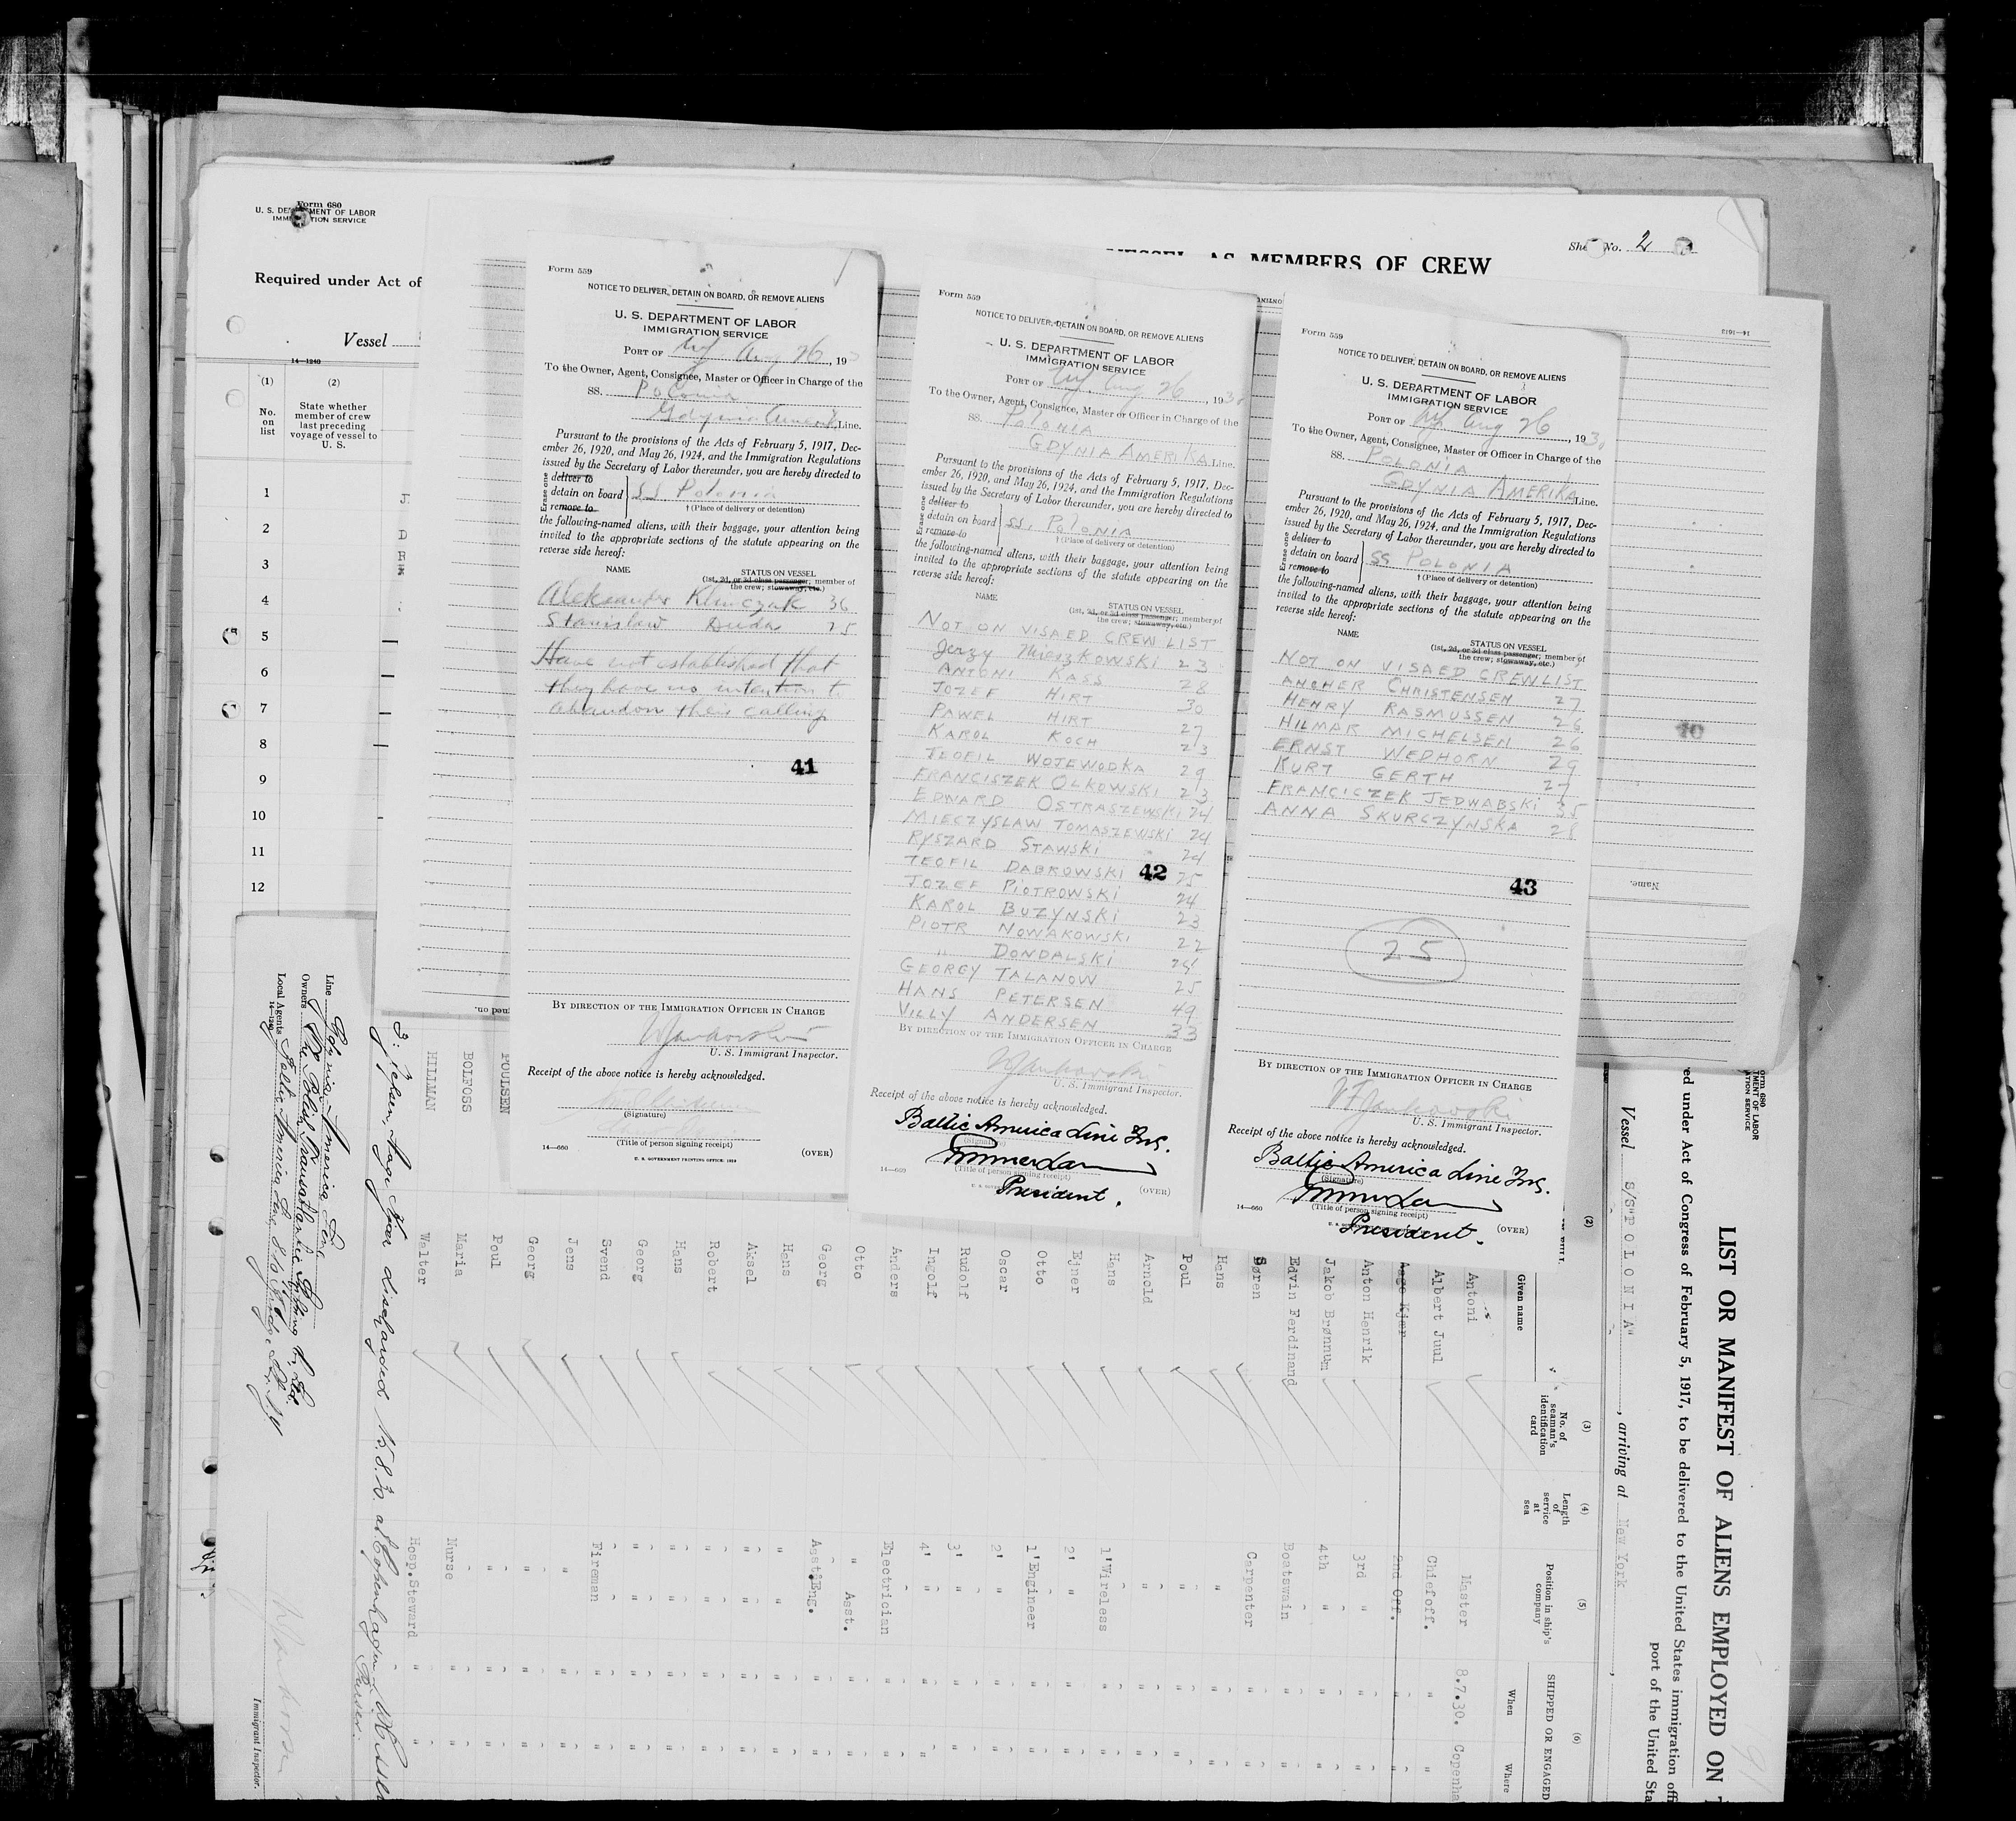 Form 680
U. S. DEPARTMENT OF LABOR
IMMIGRATION SERVICE
Required under Act of
Vessel
14—1240
(1)
No.
on
list
(2)
State whether
member of crew
last preceding
voyage of vessel to
U. S.
1
2
3
4
5
6
7
8
9
10
11
12
VESSEL AS MEMBERS OF CREW
Sheet No. 2
Form 559
NOTICE TO DELIVER, DETAIN ON BOARD, OR REMOVE ALIENS
U. S. DEPARTMENT OF LABOR
IMMIGRATION SERVICE
PORT OF NY Aug 26, 193
To the Owner, Agent, Consignee, Master or Officer in Charge of the
SS. Polonia
Gdynia America Line.
Pursuant to the provisions of the Acts of February 5, 1917, Dec-
ember 26, 1920, and May 26, 1924, and the Immigration Regulations
issued by the Secretary of Labor thereunder, you are hereby directed to
Erase one
deliver to
detain on board SS Polonia
remove to † (Place of delivery or detention)
the following-named aliens, with their baggage, your attention being
invited to the appropriate sections of the statute appearing on the
reverse side hereof:
NAME STATUS ON VESSEL
(1st, 2d, or 3d class passenger; member of
the crew; stowaway, etc.)
Aleksander Klimczak 36
Stanislaw Duda 25
Have not established that
they have no intention to
abandon their calling
41
BY DIRECTION OF THE IMMIGRATION OFFICER IN CHARGE
VFJankowski
U. S. Immigrant Inspector.
Receipt of the above notice is hereby acknowledged.
(Signature)
(Title of person signing receipt)
14—660 (OVER)
U. S. GOVERNMENT PRINTING OFFICE: 1929
Form 559
NOTICE TO DELIVER, DETAIN ON BOARD, OR REMOVE ALIENS
U. S. DEPARTMENT OF LABOR
IMMIGRATION SERVICE
PORT OF NY Aug 26, 1930
To the Owner, Agent, Consignee, Master or Officer in Charge of the
SS. POLONIA
GDYNIA AMERIKA Line.
Pursuant to the provisions of the Acts of February 5, 1917, Dec-
ember 26, 1920, and May 26, 1924, and the Immigration Regulations
issued by the Secretary of Labor thereunder, you are hereby directed to
Erase one
deliver to
detain on board SS. POLONIA
remove to † (Place of delivery or detention)
the following-named aliens, with their baggage, your attention being
invited to the appropriate sections of the statute appearing on the
reverse side hereof:
NAME STATUS ON VESSEL
(1st, 2d, or 3d class passenger; member of
the crew; stowaway, etc.)
NOT ON VISAED CREW LIST
Jerzy MIESZKOWSKI 23
ANTONI KASS 28
JOZEF HIRT 30
PAWEL HIRT 27
KAROL KOCH 23
TEOFIL WOJEWODKA 29
FRANCISZEK OLKOWSKI 23
EDWARD OSTRASZEWSKI 24
MIECZYSLAW TOMASZEWSKI 24
RYSZARD STAWSKI 24
TEOFIL DABROWSKI 25
42
JOZEF PIOTROWSKI 24
KAROL BUZYNSKI 23
PIOTR NOWAKOWSKI 22
" DONDALSKI 24
GEORGY TALANOW 25
HANS PETERSEN 49
VILLY ANDERSEN 33
BY DIRECTION OF THE IMMIGRATION OFFICER IN CHARGE
VFJankowski
U. S. Immigrant Inspector.
Receipt of the above notice is hereby acknowledged.
Baltic America Line Inc.
(Signature)
(Title of person signing receipt)
14—660 (OVER)
President.
Form 559
NOTICE TO DELIVER, DETAIN ON BOARD, OR REMOVE ALIENS
U. S. DEPARTMENT OF LABOR
IMMIGRATION SERVICE
PORT OF NY Aug 26, 1930
To the Owner, Agent, Consignee, Master or Officer in Charge of the
SS. POLONIA
GDYNIA AMERIKA Line.
Pursuant to the provisions of the Acts of February 5, 1917, Dec-
ember 26, 1920, and May 26, 1924, and the Immigration Regulations
issued by the Secretary of Labor thereunder, you are hereby directed to
Erase one
deliver to
detain on board SS POLONIA
remove to † (Place of delivery or detention)
the following-named aliens, with their baggage, your attention being
invited to the appropriate sections of the statute appearing on the
reverse side hereof:
NAME STATUS ON VESSEL
(1st, 2d, or 3d class passenger; member of
the crew; stowaway, etc.)
NOT ON VISAED CREW LIST
ANCHER CHRISTENSEN 27
HENRY RASMUSSEN 26
HILMAR MICHELSEN 26
ERNST WEDHORN 29
KURT GERTH 27
FRANCICZEK JEDWABSKI 35
ANNA SKURCZYNSKA 28
43
25
BY DIRECTION OF THE IMMIGRATION OFFICER IN CHARGE
VFJankowski
U. S. Immigrant Inspector.
Receipt of the above notice is hereby acknowledged.
Baltic America Line Inc.
(Signature)
(Title of person signing receipt)
14—660 (OVER)
President.
14—1612
40
Name.
LIST OR MANIFEST OF ALIENS EMPLOYED ON T
ed under Act of Congress of February 5, 1917, to be delivered to the United States immigration off
port of the United Sta
Vessel S/S "POLONIA", arriving at New York
(2)
Given name
(3)
No. of
seaman's
identification
card
(4)
Length
of
service
at
sea
(5)
Position in ship's
company
(6)
SHIPPED OR ENGAGED
When
Where
Antoni Master 8.7.30. Copenha
Albert Juul Chiefoff. " "
Aage Kjær 2nd Off. " "
Anton Henrik 3rd " " "
Jakob Brønnum 4th " " "
Edvin Ferdinand Boatswain " "
Søren Carpenter " "
Hans " " "
Poul " " "
Arnold " " "
Hans 1'Wireless " "
Ejner 2' " " "
Otto 1'Engineer " "
Oscar 2' " " "
Rudolf 3' " " "
Ingolf 4' " " "
Anders Electrician " "
Otto " Asst. " "
Georg Asst.Eng. " "
Hans " " " "
Aksel " " " "
Robert " " " "
Hans " " " "
Georg " " " "
Svend Fireman " "
Jens " " "
Georg " " "
POULSEN Poul " " "
BOLFOSS Maria Nurse " "
HILLMAN Walter Hosp.Steward " "
Aage Kjær discharged 15.8.30. at Copenhagen
Purser.
Line Gdynia-America Line
Owners The Polish Transatlantic Shipping Co. Ltd.
Local Agents Baltic America Line, 8-10 Bridge Str. N.Y.
14—1240
Immigrant Inspector.